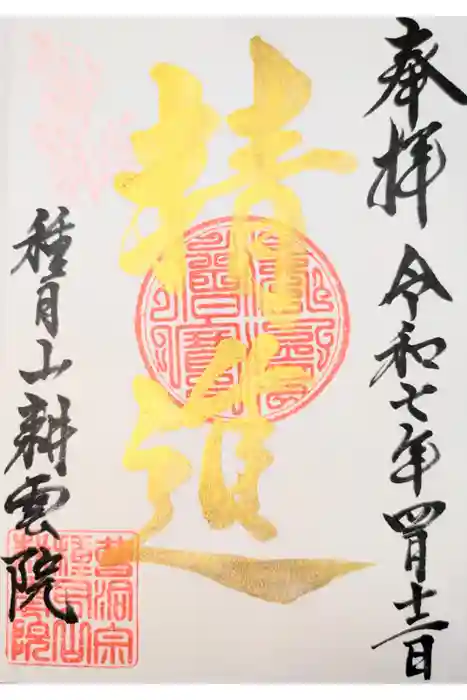 奉拝 令和七年四月十二日
精進
種月山 耕雲院
曹洞宗
種月山
耕雲院